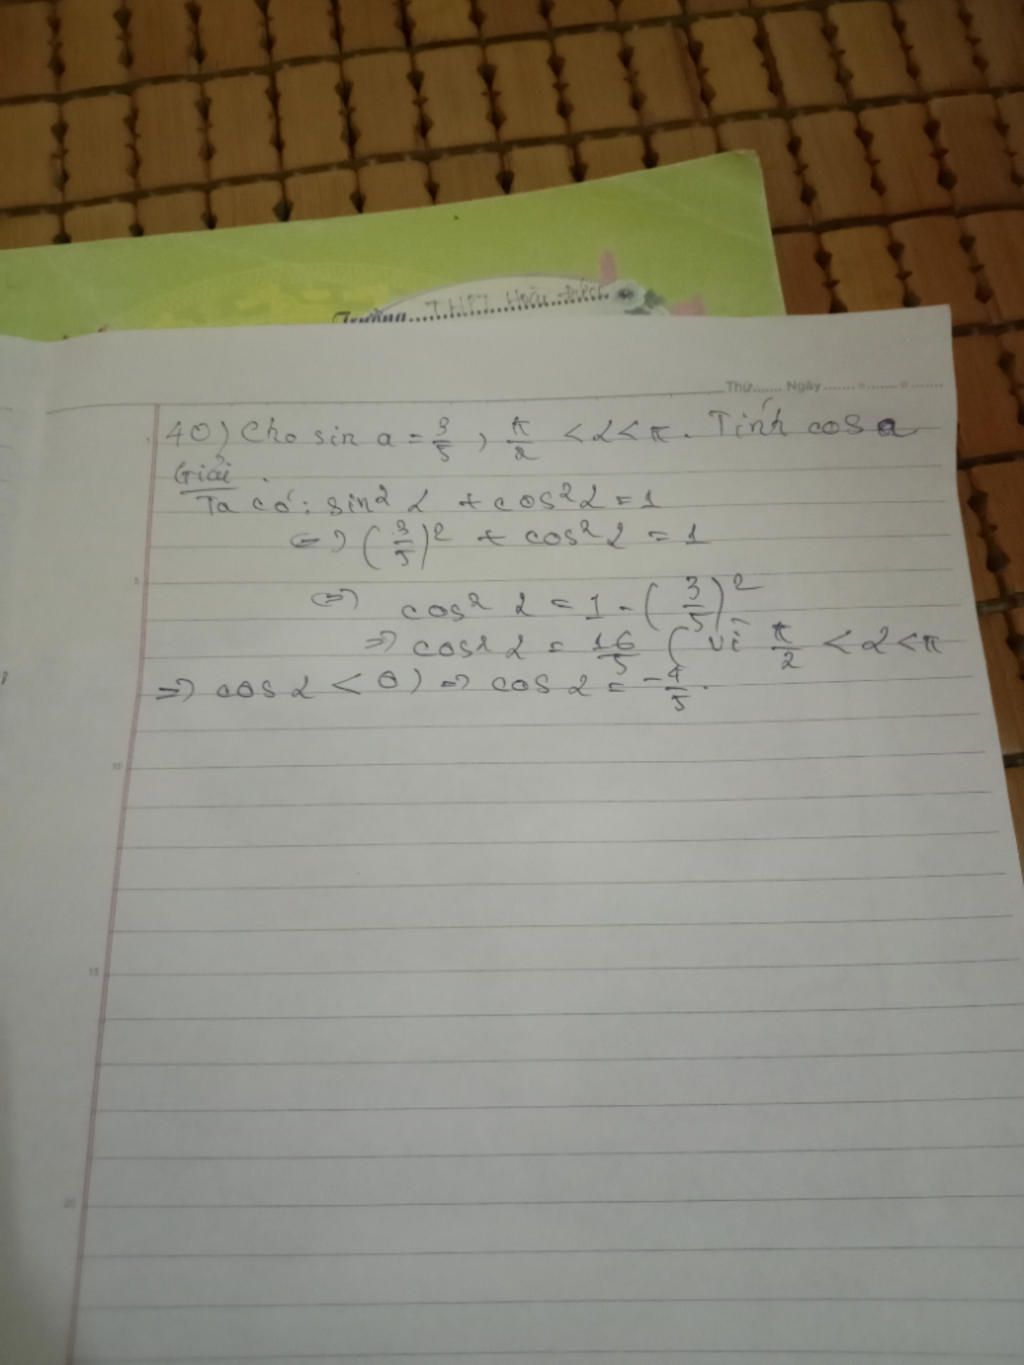 Trường....THPT Hoài Đức
Thứ....... Ngày
40) Cho sin a = 3/5 , π/2 < α < π. Tính cos a
Giải
Ta có: sin² α + cos² α = 1
<=> (3/5)² + cos² α = 1
<=> cos² α = 1 - (3/5)²
=> cos² α = 16/5 ( vì π/2 < α < π
=> cos α < 0) => cos α = -4/5.
5
10
15
20